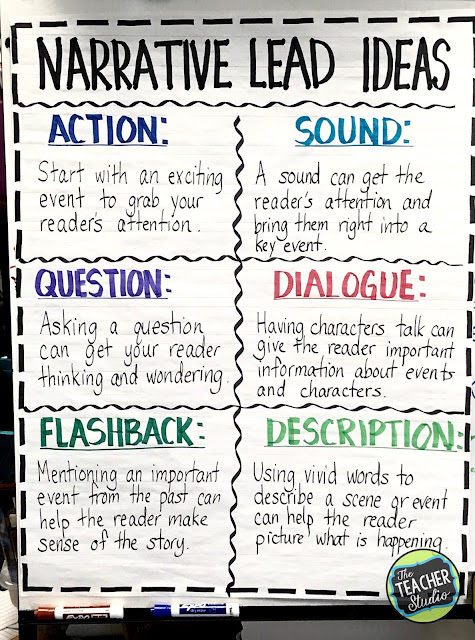 NARRATIVE LEAD IDEAS
ACTION:
Start with an exciting
event to grab your
reader's attention.
SOUND:
A sound can get the
reader's attention and
bring them right into a
key event.
QUESTION:
Asking a question
can get your reader
thinking and wondering.
DIALOGUE:
Having characters talk can
give the reader important
information about events
and characters.
FLASHBACK:
Mentioning an important
event from the past can
help the reader make
sense of the story.
DESCRIPTION:
Using vivid words to
describe a scene or event
can help the reader
picture what is happening.
The
TEACHER
Studio
EXPO